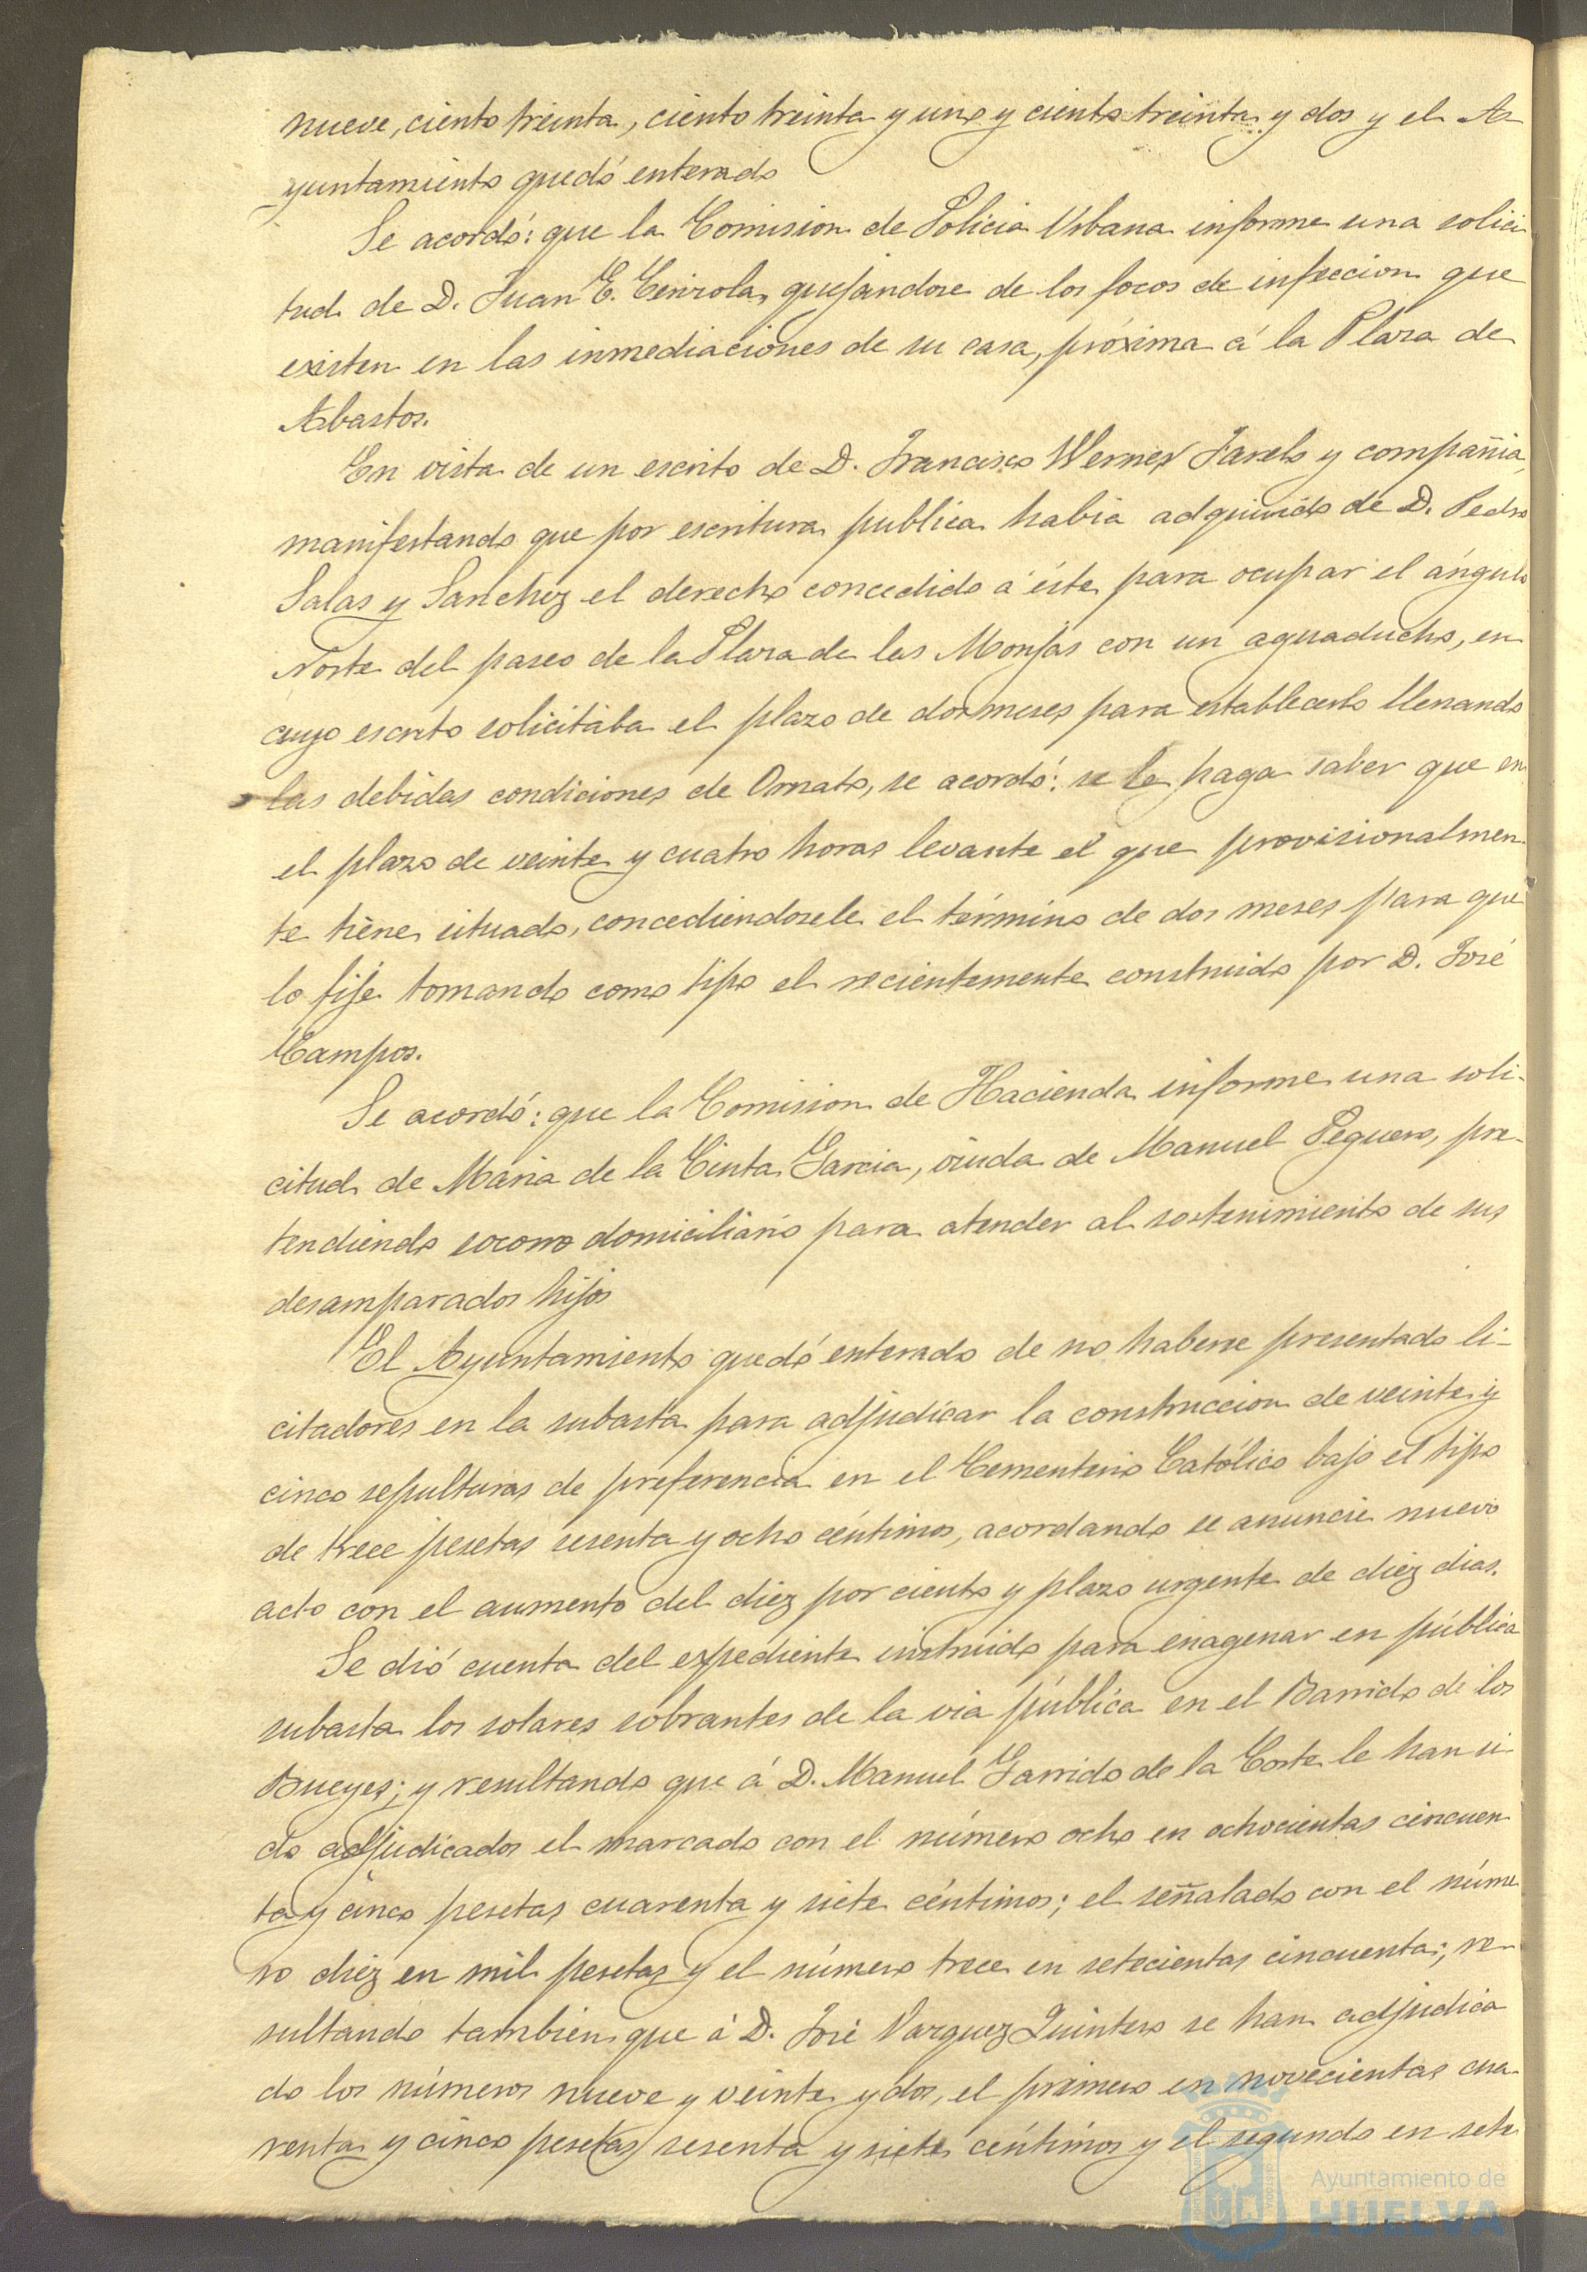 nueve, ciento treinta, ciento treinta y uno y ciento treinta y dos y el A-
yuntamiento quedó enterado
Se acordó: que la Comision de Policia Urbana informe una solici
tud de D. Juan E. quejandose de los focos de infeccion que
existen en las inmediaciones de su casa, próxima á la Plaza de
Abastos.
En vista de un escrito de D. Francisco Werner y compañia,
manifestando que por escritura publica habia adquirido de D. Pedro
Salas y Sanchez el derecho concedido á éste para ocupar el ángulo
Norte del paseo de la Plaza de las Monjas con un aguaducho, en
cuyo escrito solicitaba el plazo de dos meses para establecerlo llenando
las debidas condiciones de Ornato, se acordó: se le haga saber que en
el plazo de veinte y cuatro horas levante el que provisionalmen
te tiene situado, concediendosele el término de dos meses para que
lo fije tomando como tipo el recientemente construido por D. José
Campos.
Se acordó: que la Comision de Hacienda informe una soli-
citud de Maria de la Cinta Garcia, viuda de Manuel Peguero, pre-
tendiendo socorro domiciliario para atender al sostenimiento de sus
desamparados hijos
El Ayuntamiento quedó enterado de no haberse presentado li-
citadores en la subasta para adjudicar la construccion de veinte y
cinco sepulturas de preferencia en el Cementerio Católico bajo el tipo
de trece pesetas sesenta y ocho céntimos, acordando se anuncie nuevo
acto con el aumento del diez por ciento y plazo urgente de diez dias.
Se dió cuenta del expediente instruido para enagenar en pública
subasta los solares sobrantes de la via pública en el Barrido de los
Bueyes; y resultando que á D. Manuel Garrido de la Corte le han si-
do adjudicados el marcado con el número ocho en ochocientas cincuen
ta y cinco pesetas cuarenta y siete céntimos; el señalado con el núme
ro diez en mil pesetas y el número trece en setecientas cincuenta; re-
sultando tambien que á D. José Vazquez Quintero se han adjudica
do los números nueve y veinte y dos, el primero en novecientas cua-
renta y cinco pesetas sesenta y siete céntimos y el segundo en sete
Ayuntamiento de
HUELVA